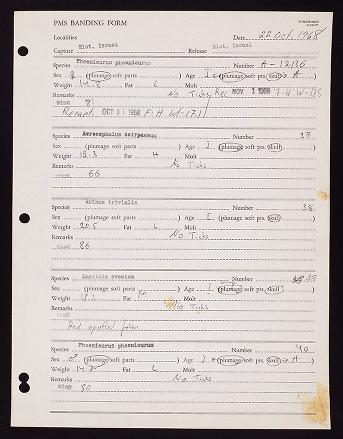 PMS BANDING FORM
Localities Date 22 Oct. 1968
Capture Elat, Israel Release Elat, Israel
Species Phoenicurus phoenicurus Number A-12136
Sex ♀ (plumage soft parts) Age (plumage soft pts. skull) A
Weight Fat L Molt
Remarks No Ticks Rec NOV 1 1968 F.H. Wt-17.5
WING 81
Recapt. OCT 31 1968 F.H. Wt-17.1
Species Acrocephalus scirpaceus Number 37
Sex (plumage soft parts) Age (plumage soft pts. skull)
Weight Fat Molt
Remarks No Ticks
WING 66
Species Anthus trivialis Number 38
Sex (plumage soft parts) Age (plumage soft pts. skull)
Weight 20.5 Fat L Molt
Remarks No Ticks
WING 86
Species Luscinia svecica Number 39
Sex (plumage soft parts) Age (plumage soft pts. skull)
Weight Fat M Molt
Remarks No Ticks
WING
Red spotted form
Species Phoenicurus phoenicurus Number 40
Sex ♂ (plumage soft parts) Age (plumage soft pts. skull) A
Weight Fat L Molt
Remarks No Ticks
WING 80